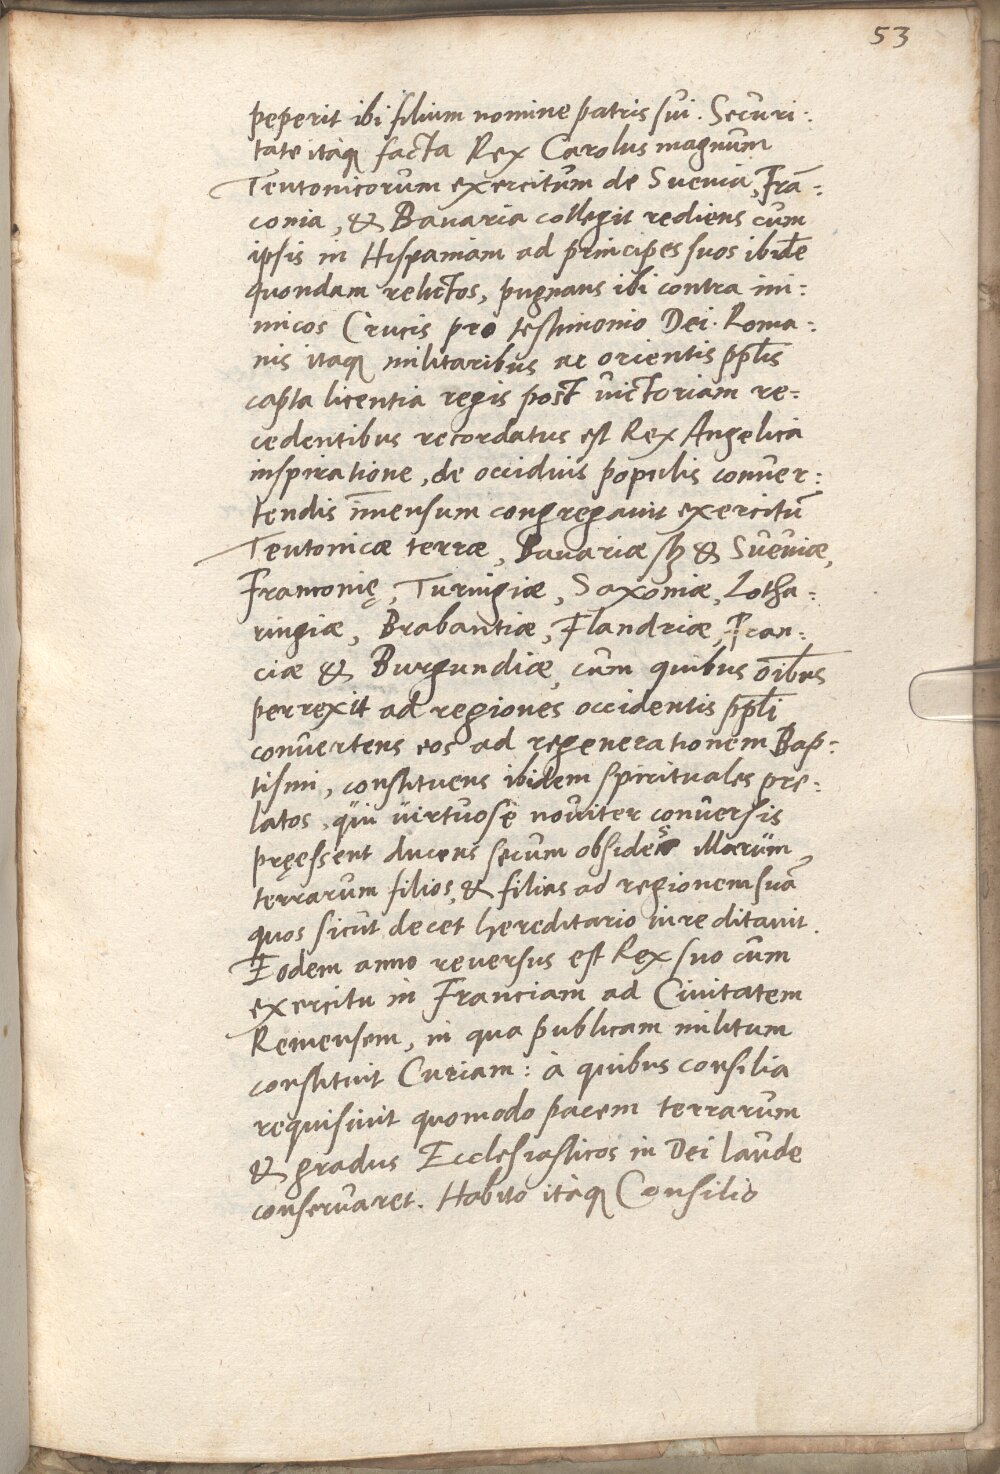 53
peperit ibi filium nomine patris sui. Securi:
tate itaq facta Rex Carolus magnum
Teutonicorum exercitum de Sueuia, Frā:
conia, & Bauaria collegit rediens cum
ipsis in Hispaniam ad principes suos ibidē
quondam relictos, pugnans ibi contra ini:
micos Crucis pro testimonio Dei. Roma:
nis itaq militaribus ac orientis ppłis
capta licentia regis post uictoriam re:
cedentibus recordatus est Rex Angelica
inspiratione, de occiduis populis conuer:
tendis īmensum congregauit exercitū
Teutonicæ terræ, Bauariæ sꝫ & Sueuiæ,
Franconię, Turingiæ, Saxoniæ, Lotha:
ringiæ, Brabantiæ, Flandriæ, Fran:
ciæ & Burgundiæ, cum quibus oībus
perrexit ad regiones occidentis ppłi
conuertens eos ad regenerationem Bap:
tismi, constituens ibidem spirituales pre:
latos, qui uirtuose nouiter conuersis
pręessent ducens secum obsides illarum
terrarum filios, & filias ad regionem suā
quos sicut decet hereditario iure ditauit.
Eodem anno reuersus est Rex suo cum
exercitu in Franciam ad Ciuitatem
Remensem, in qua publicam militum
constituit Curiam: à quibus consilia
requisiuit quomodo pacem terrarum
& gradus Ecclesiasticos in Dei laude
conseruaret. Habito itaq Consilio